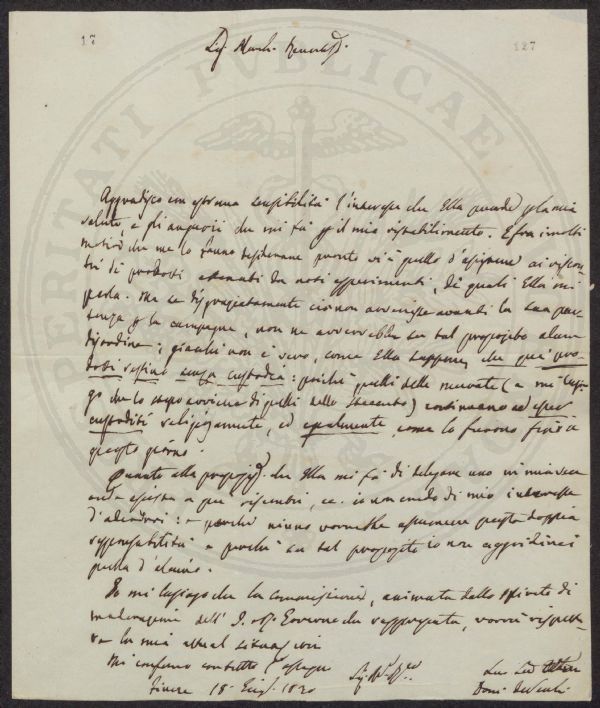 17
127
Apprendisco con estrema sensibilità l'interesse che Ella prende p la mia
salute, e gli augurii che mi fà p il mio ristabilimento. E fra i molti
motivi che me lo fanno desiderare pronto vi è quello d'assistere ai riscon
tri di prodotti ottenuti da noti esperimenti, de quali Ella mi
parla. Ma se disgraziatamente ciò non avvenisse avanti la sua par
tenza p la campagna, non ne avverrebbe su tal proposito alcun
disordine; giacchè non è vero, come Ella suppone, che quei pro
dotti restino senza custodia: poichè quelli delle
go che lo stesso avviene di quelli dello Stecchetto) continuano ad esser
custoditi religiosamente, ed egualmente, come lo furono fino a
questo giorno.
Quanto alla proposizione che Ella mi fà di delegare uno in mia vece
onde assista a quei riscontri, ec. io non credo di mio interesse
d'aderirvi: e perchè niuno vorrebbe assumere questa doppia
responsabilità e perchè su tal proposito io non
quella d'alcuno.
Io mi lusingo che la commissione, animata dallo spirito di
dell' I. e R. Governo che rappresenta, vorrà rispetta
re la mia attual situazione
Mi confermo con tutto l'ossequio
18 1830